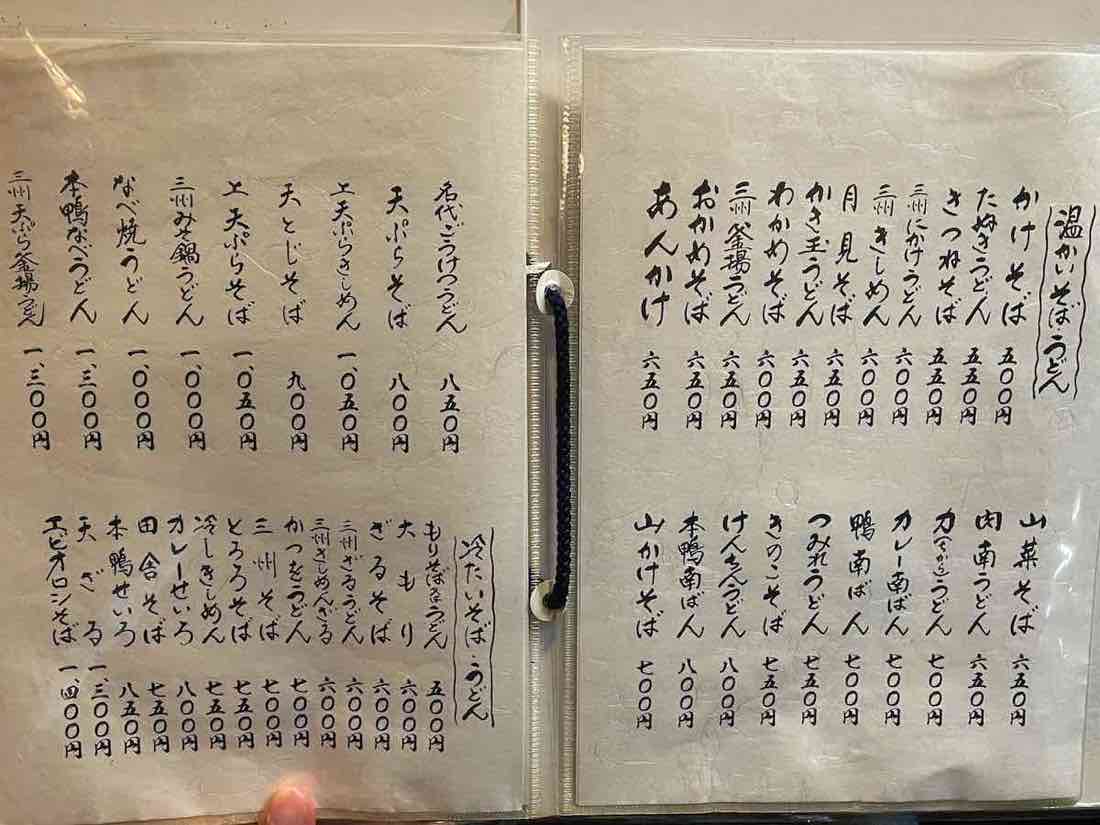 温かいそば・うどん
かけそば 五〇〇円
たぬきうどん 五五〇円
きつねそば 五五〇円
三州にかけうどん 六〇〇円
三州きしめん 六〇〇円
月見そば 六五〇円
かき玉うどん 六五〇円
わかめそば 六〇〇円
三州釜揚うどん 六五〇円
おかめそば 六五〇円
あんかけ 六五〇円
山菜そば 六五〇円
肉南うどん 六五〇円
力(ちから)うどん 七〇〇円
カレー南ばん 七〇〇円
鴨南ばん 七〇〇円
つみれうどん 七五〇円
きのこそば 七五〇円
けんちんうどん 八〇〇円
本鴨南ばん 八〇〇円
山かけそば 七〇〇円
名代ごうけつうどん 八五〇円
天ぷらそば 八〇〇円
上天ぷらきしめん 一、〇五〇円
天とじそば 九〇〇円
上天ぷらそば 一、〇五〇円
三州みそ鍋うどん 一、〇〇〇円
なべ焼うどん 一、〇〇〇円
本鴨なべうどん 一、三〇〇円
三州天ぷら釜揚うどん 一、三〇〇円
冷たいそば・うどん
もりそば又はうどん 五〇〇円
大もり 六〇〇円
ざるそば 六〇〇円
三州ざるうどん 六〇〇円
三州きしめんざる 六〇〇円
かつをうどん 七〇〇円
三州そば 七〇〇円
とろろそば 七五〇円
冷しきしめん 七五〇円
カレーせいろ 八〇〇円
田舎そば 七五〇円
本鴨せいろ 八五〇円
天ざる 一、三〇〇円
エビオロシそば 一、四〇〇円